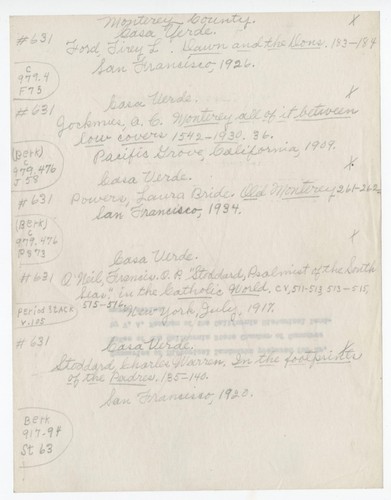 Monterey County
Casa Verde.
#631
Ford Tirey L. Dawn and the Dons. 183-184
San Francisco, 1926.
C
979.4
F73
Casa Verde.
#631
Jockmus, A. C. Monterey all of it between
low covers 1542-1930. 36.
Pacific Grove, California, 1909.
(Berk)
C
979.476
J58
Casa Verde.
#631
Powers, Laura Bride. Old Monterey, 261-262.
San Francisco, 1934.
(Berk)
C
979.476
P873
Casa Verde.
#631
O'Neil, Francis. O. P. "Stoddard, Psalmist of the South
Seas," in the Catholic World. CV, 511-513 513-515,
515-516.
New York, July, 1917.
Period Stack
V.105
#631
Casa Verde.
Stoddard, Charles Warren, In the footprints
of the Padres, 135-140.
San Francisco, 1920.
Berk
917.94
St63